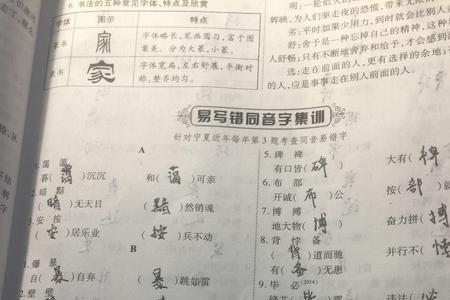 6. 书法的五种常见字体、特点及欣赏
字体 图示 特点
家 字体略长,笔画圆匀,富于图
案美。分为大篆、小篆。
隶书 家 字体宽扁,左右舒展,平衡对
称,整齐均匀。
辉映,为人们驱走夜的恐慌,带来无限的
劣;平时如果少用力,到时就会比别人
舒;舍于是一种忘掉自己的精神,这种
人舒畅;只有不断地舍弃和给予,才会感到
选;走在前面的,更有选择的余地;
的人,应是事事走在别人前面的人。
易写错同音字集训
针对宁夏近年每年第3题考查同音易错字
A
1. 蔼 霭
暮(霭)沉沉 和(蔼)可亲
2. 暗 黯
(暗)无天日 (黯)然销魂
3. 安 按
(安)居乐业 (按)兵不动
B
1. 爆 暴
自(暴)自弃 (暴)跳如雷
2. 壁 璧
5. 碑 裨
有口皆(碑) 大有(裨
6. 布 部
开诚(布)公 按(部)就
7. 博 搏
地大物(博) 奋力拼(搏
8. 背 悖 备
(背)道而驰 并行不(悖
有(备)无患 违法(
9. 毕 必(2014)